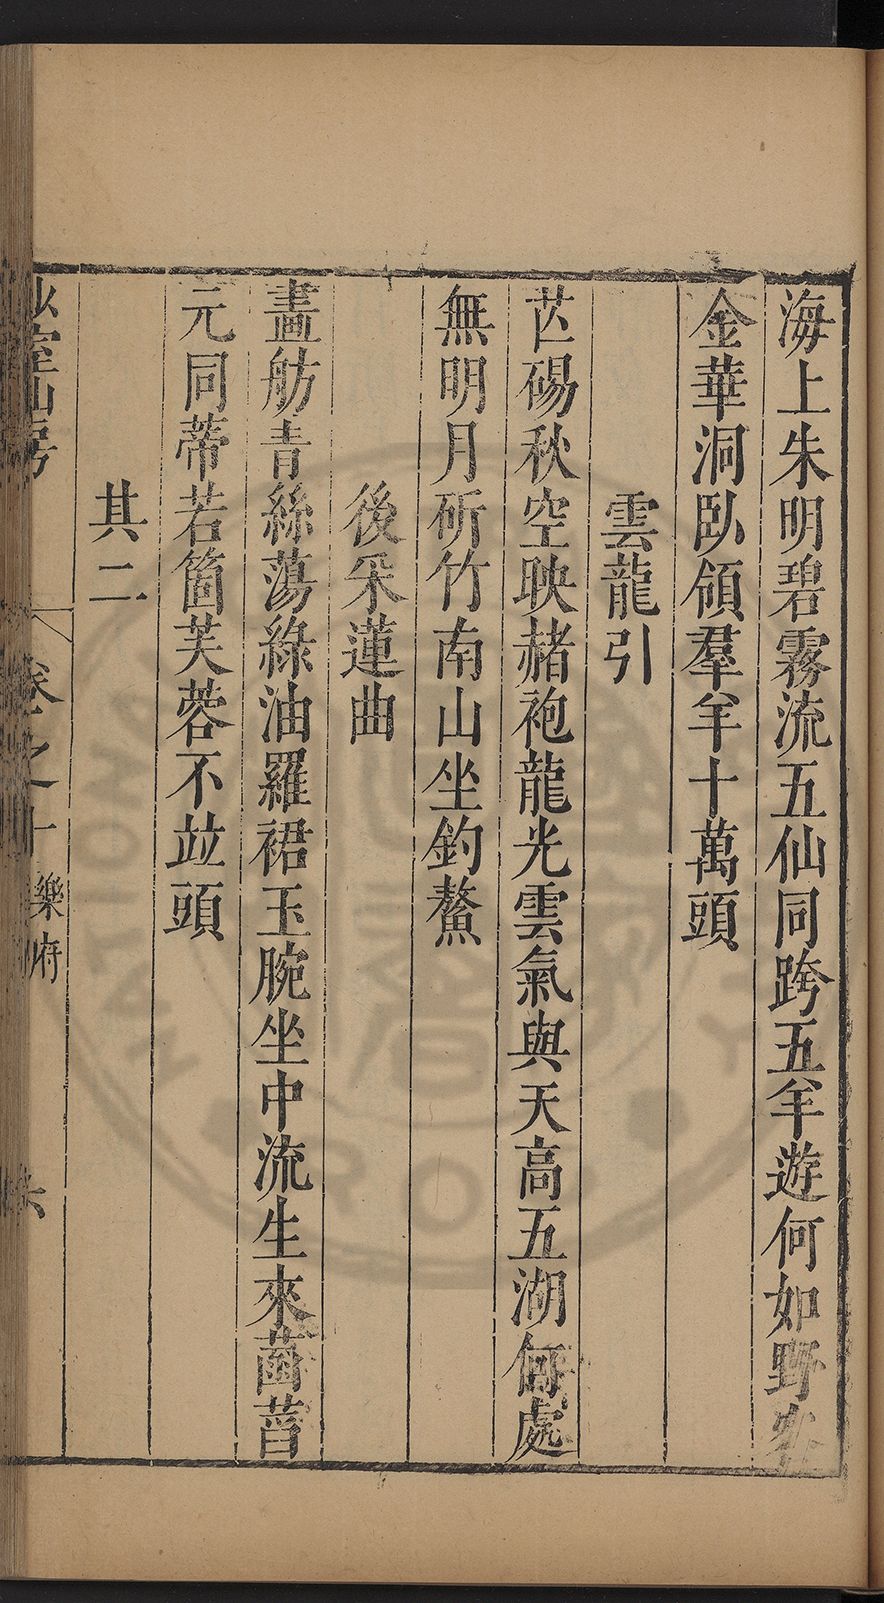 海上朱明碧霧流五仙同跨五羊遊何如野客
金華洞臥領羣羊十萬頭
雲龍引
芒碭秋空映赭袍龍光雲氣與天高五湖何處
無明月斫竹南山坐釣鰲
後采蓮曲
畫舫青絲蕩綠油羅裙玉腕坐中流生來菡萏
元同蒂若箇芙蓉不竝頭
其二
室山房
卷之十
樂府
六